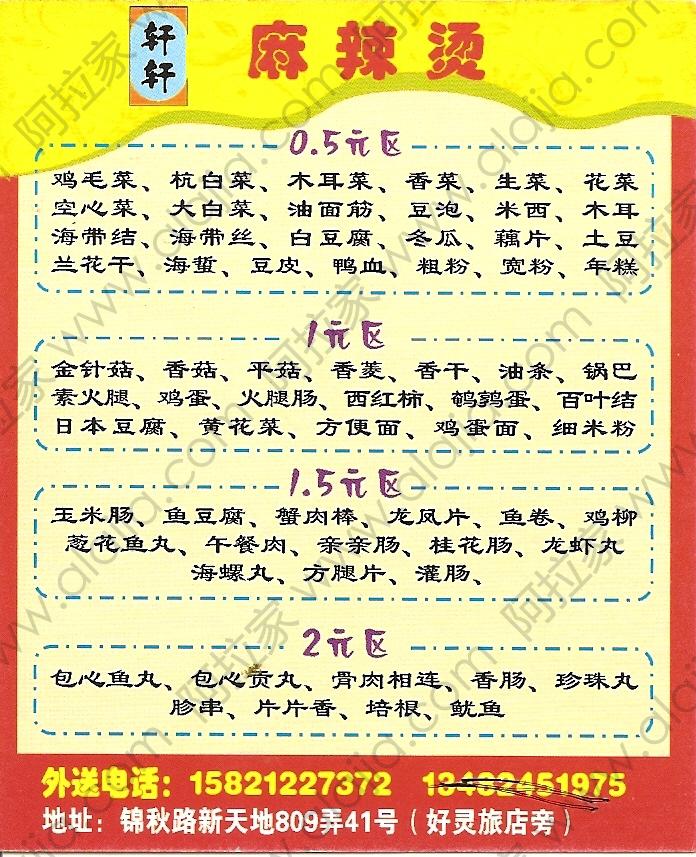 轩轩
麻辣烫
0.5元区
鸡毛菜、杭白菜、木耳菜、香菜、生菜、花菜
空心菜、大白菜、油面筋、豆泡、米西、木耳
海带结、海带丝、白豆腐、冬瓜、藕片、土豆
兰花干、海蜇、豆皮、鸭血、粗粉、宽粉、年糕
1元区
金针菇、香菇、平菇、香菱、香干、油条、锅巴
素火腿、鸡蛋、火腿肠、西红柿、鹌鹑蛋、百叶结
日本豆腐、黄花菜、方便面、鸡蛋面、细米粉
1.5元区
玉米肠、鱼豆腐、蟹肉棒、龙凤片、鱼卷、鸡柳
葱花鱼丸、午餐肉、亲亲肠、桂花肠、龙虾丸
海螺丸、方腿片、灌肠、
2元区
包心鱼丸、包心贡丸、骨肉相连、香肠、珍珠丸
胗串、片片香、培根、鱿鱼
外送电话：15821227372 13482451975
地址：锦秋路新天地809弄41号（好灵旅店旁）
阿拉家 www.alajia.com